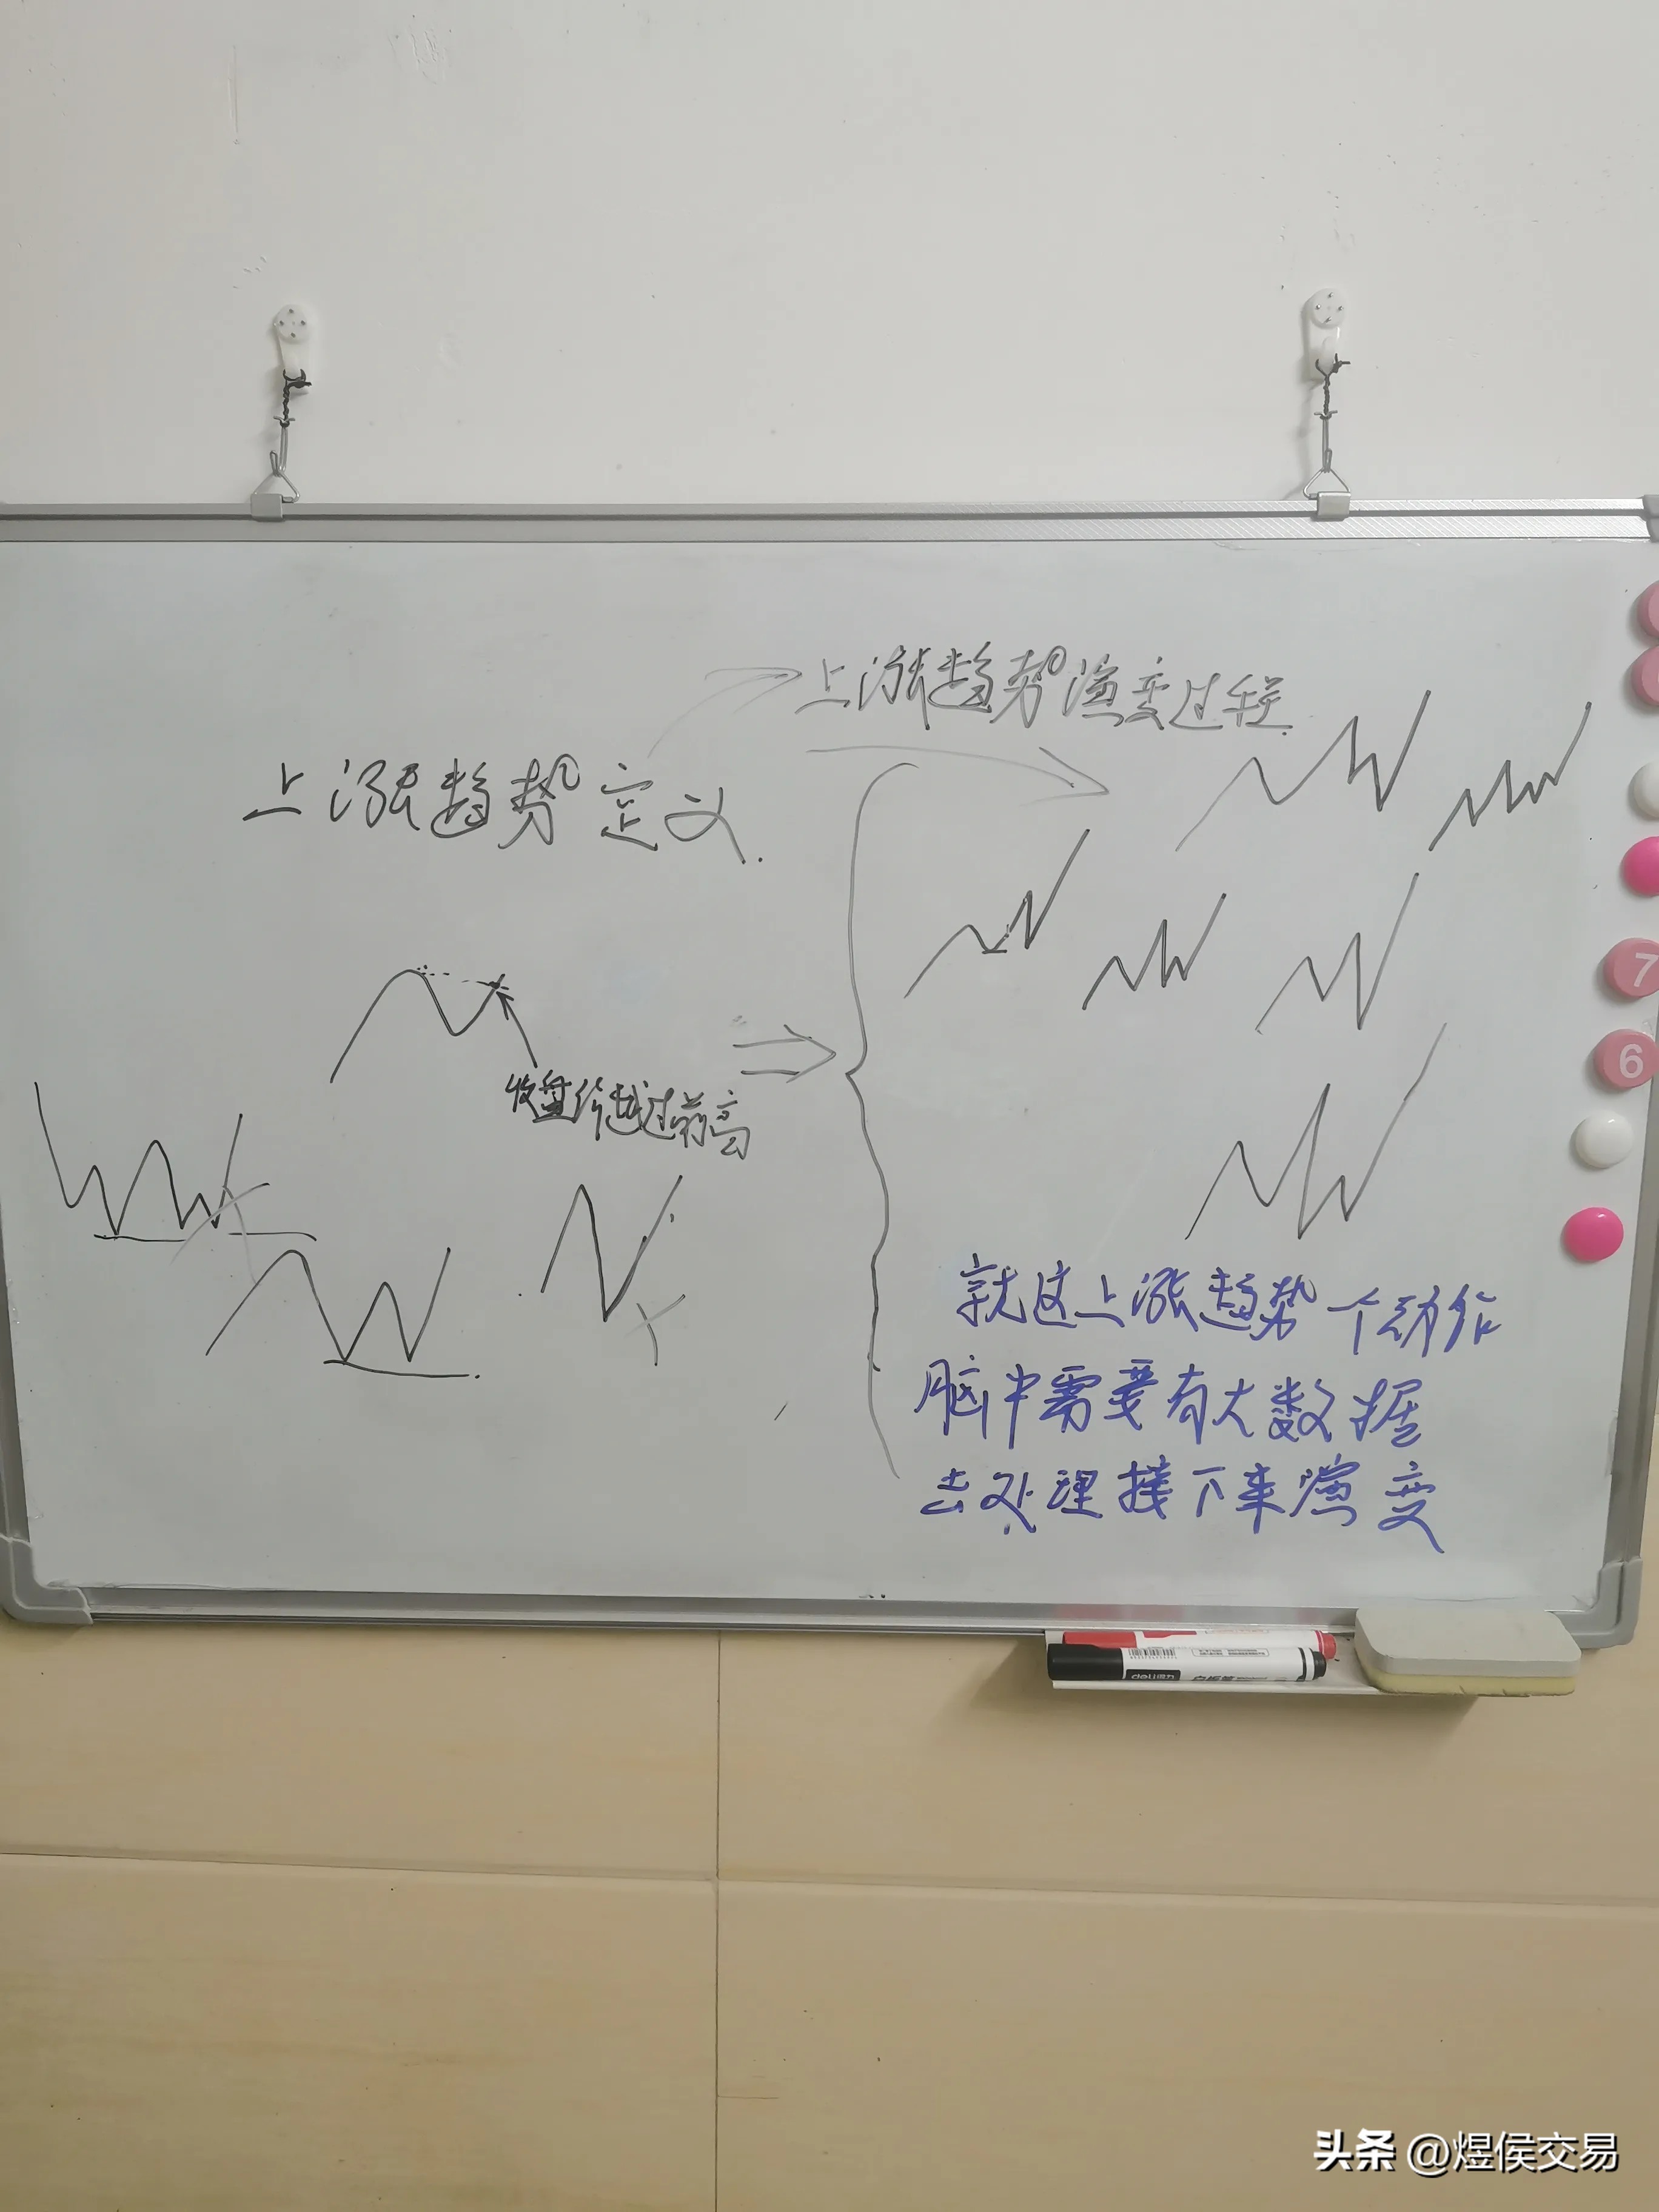 上涨趋势演变过程
上涨趋势定义.
收盘价越过前高
就这上涨趋势一个动作
脑中需要有大数据
去处理接下来演变
7
6
deli得力
头条 @煜侯交易